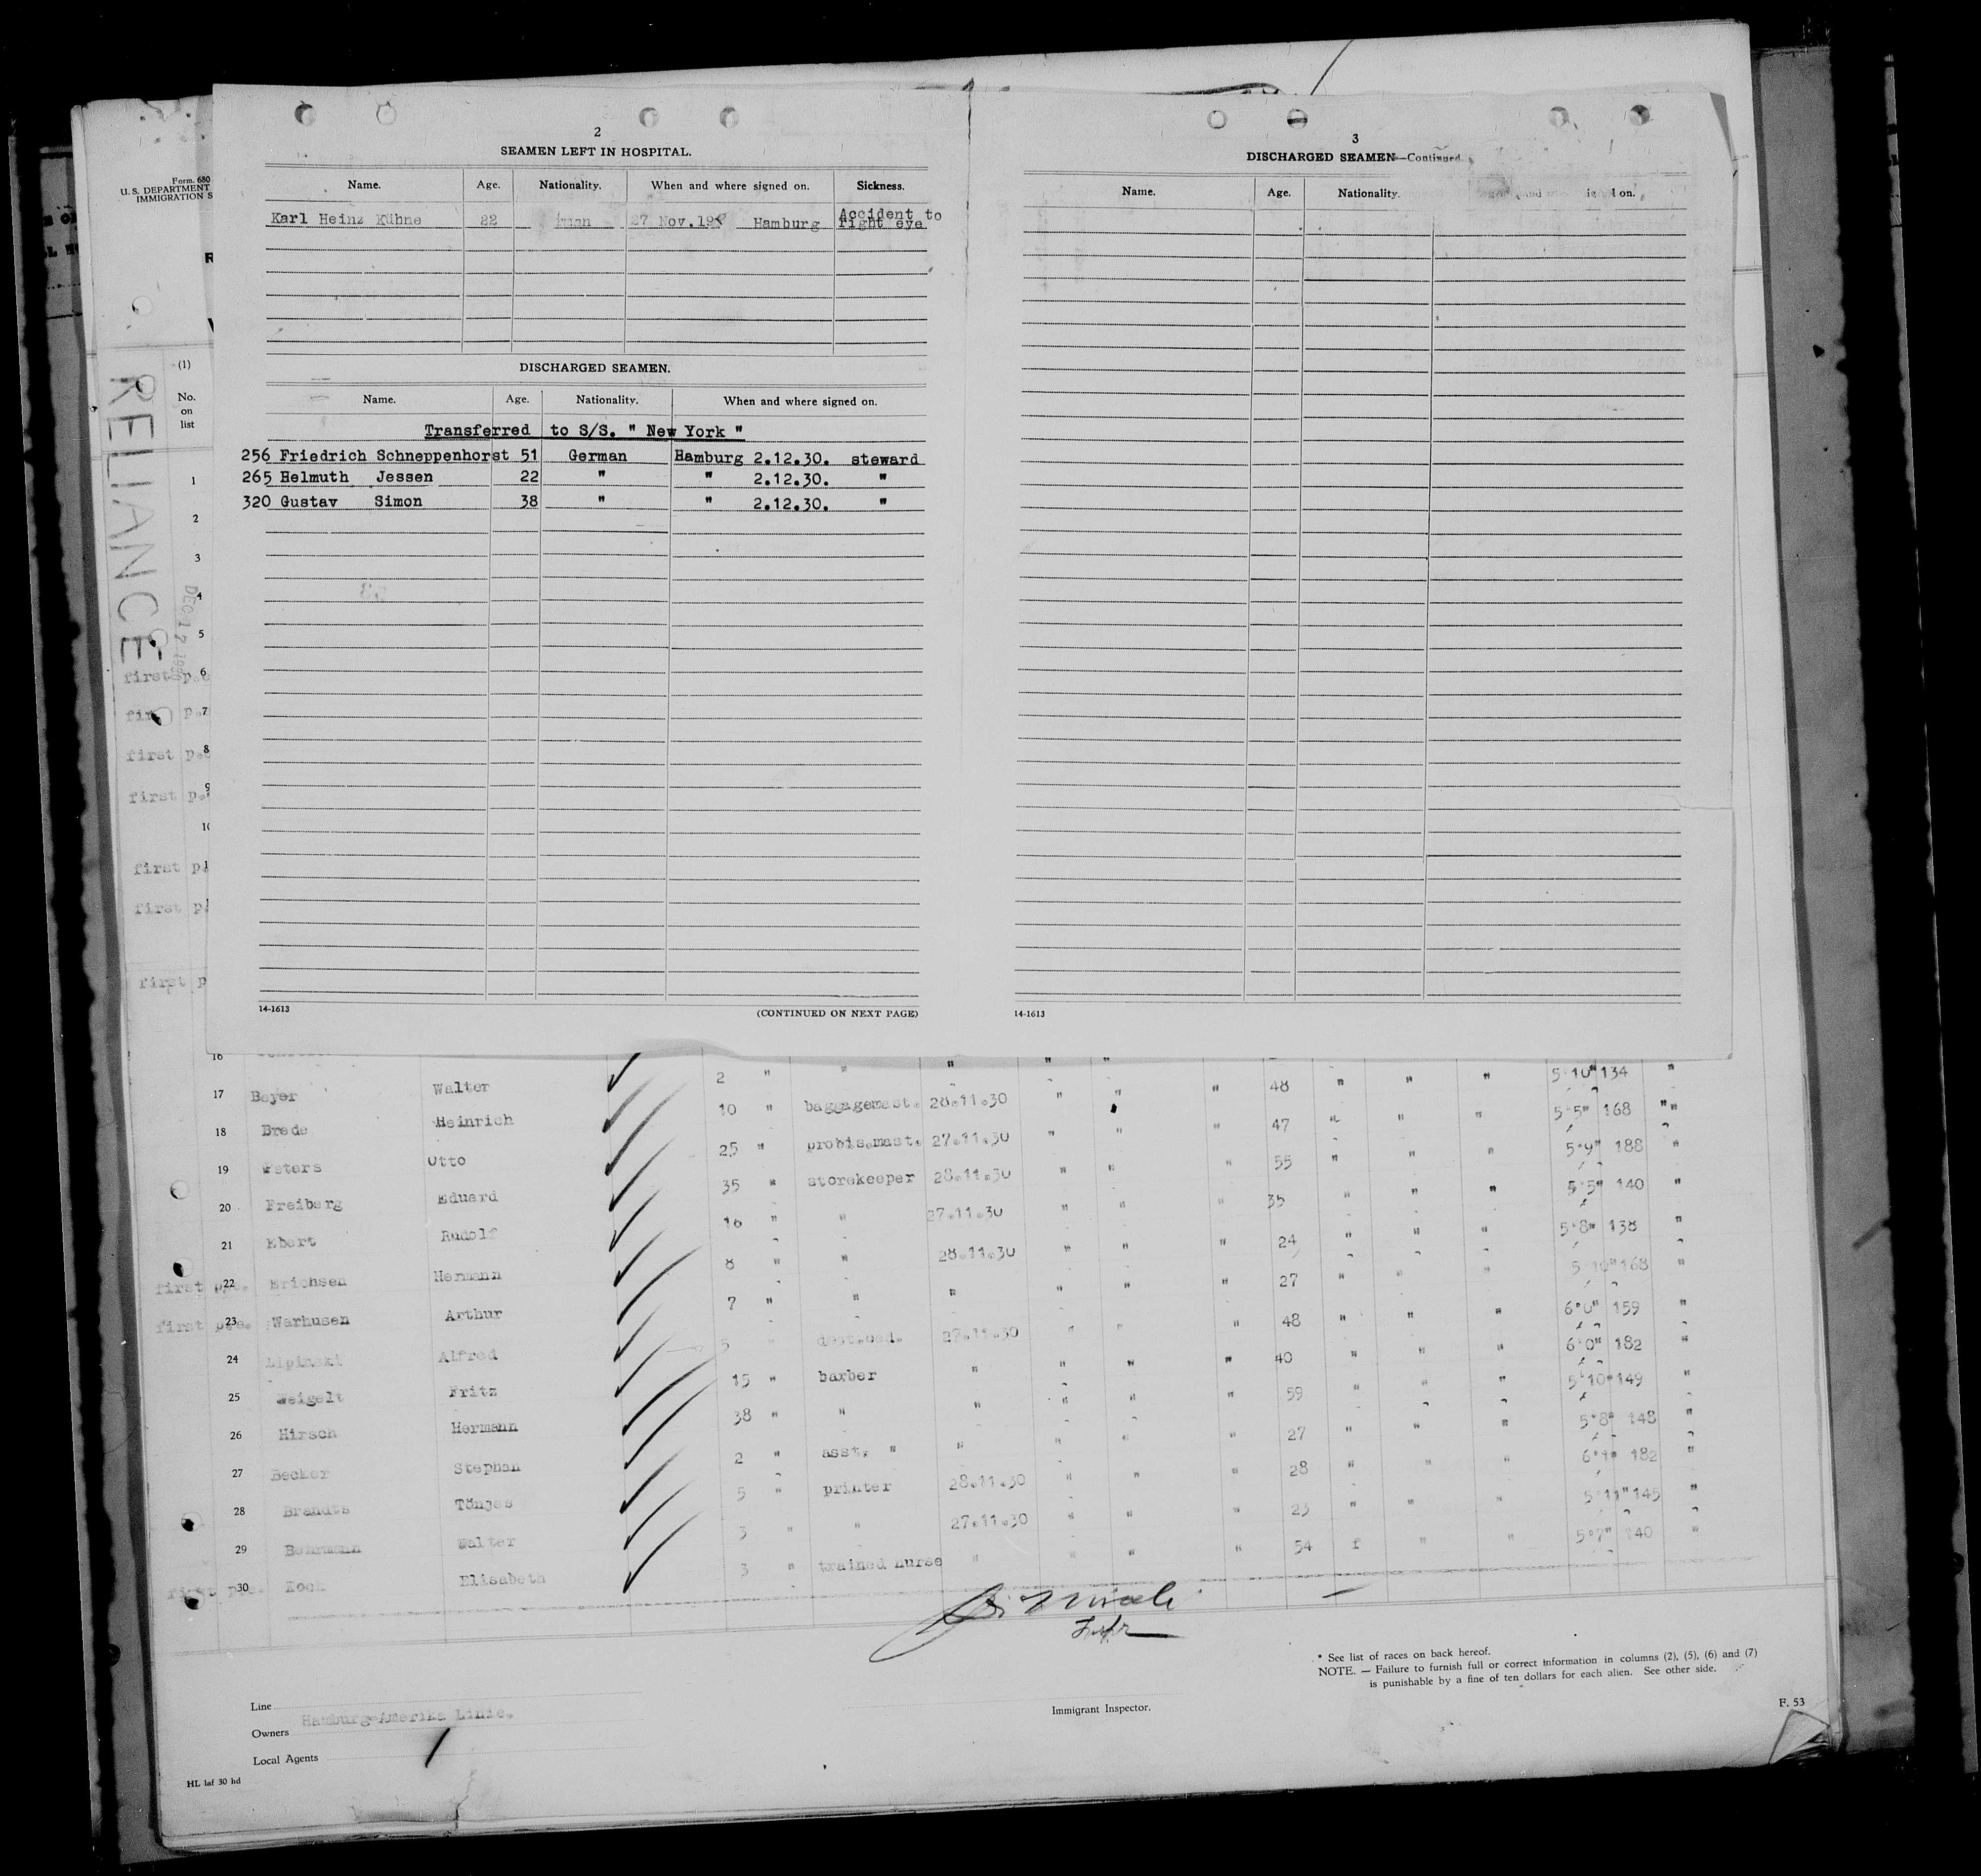 2
SEAMEN LEFT IN HOSPITAL.
Name. Age. Nationality. When and where signed on. Sickness.
Karl Heinz Kühne 22 27 Nov. Hamburg Accident to right eye
DISCHARGED SEAMEN.
Name. Age. Nationality. When and where signed on.
Transferred to S/S. " New York "
256 Friedrich Schneppenhorst 51 German Hamburg 2.12.30. steward
265 Helmuth Jessen 22 " " 2.12.30. "
320 Gustav Simon 38 " " 2.12.30. "
14-1613 (CONTINUED ON NEXT PAGE)
3
DISCHARGED SEAMEN—Continued.
Name. Age. Nationality. on.
14-1613
Form. 680
U. S. DEPARTMENT
IMMIGRATION S
(1)
No.
on
list
RELIANCE
DEC 17
1
2
3
4
5
first 6
7
first p. 8
first p. 9
first p.
first p
first p
16
17 Beyer Walter 2 " " " " " " 48 " " " 5'10" 134 "
18 Brede Heinrich 10 " baggagemast. 28.11.30 " " " 47 " " " 5'5" 168 "
19 Peters Otto 25 " probis.mast. 27.11.30 " " " 55 " " " 5'9" 188 "
20 Freiberg Eduard 35 " storekeeper 28.11.30 " " " 35 " " " 5'5" 140 "
21 Ebert Rudolf 16 " " 27.11.30 " " " 24 " " " 5'8" 138 "
first 22 Erichsen Hermann 8 " " 28.11.30 " " " 27 " " " 5'10" 168 "
first 23 Warhusen Arthur 7 " " " " " " 48 " " " 6'0" 159 "
24 Lipinski Alfred 5 " 27.11.30 " " " 40 " " " 6'0" 182 "
25 Weigelt Fritz 15 " barber " " " " 59 " " " 5'10" 149 "
26 Hirsch Hermann 38 " " " " " " 27 " " " 5'8" 148 "
27 Becker Stephan 2 " asst. " " " " " 28 " " " 6'1" 182 "
28 Brandts Tönjes 5 " printer 28.11.30 " " " 23 " " " 5'11" 145 "
29 Behrmann Walter 3 " " 27.11.30 " " " 54 f " " 5'7" 140 "
30 Koch Elisabeth 3 " trained nurse " " " "
Line
Owners Hamburg-Amerika Linie.
Local Agents
Immigrant Inspector.
* See list of races on back hereof.
NOTE. — Failure to furnish full or correct information in columns (2), (5), (6) and (7)
is punishable by a fine of ten dollars for each alien. See other side.
F. 53
HL laf 30 hd